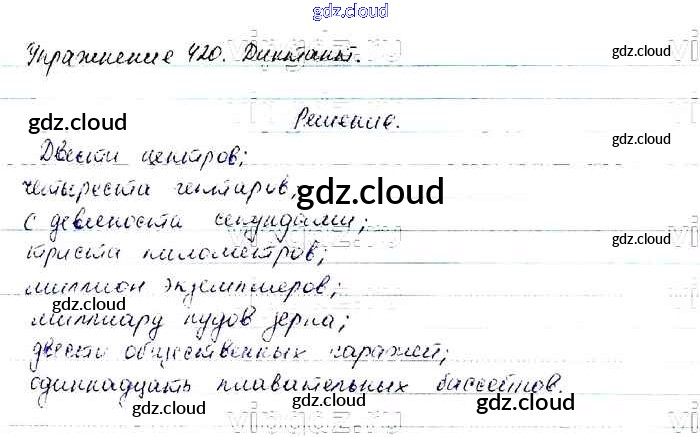 gdz.cloud
Упражнение 420. Диктант.
gdz.cloud
Решение.
gdz.cloud
gdz.cloud
Двести центров;
четыреста гектаров,
gdz.cloud
с девяноста секундами;
gdz.cloud
триста километров;
миллион экземпляров;
gdz.cloud
миллиард пудов зерна;
gdz.cloud
двести общественных гаражей;
одиннадцать плавательных бассейнов.
gdz.cloud
gdz.cloud
gdz.cloud